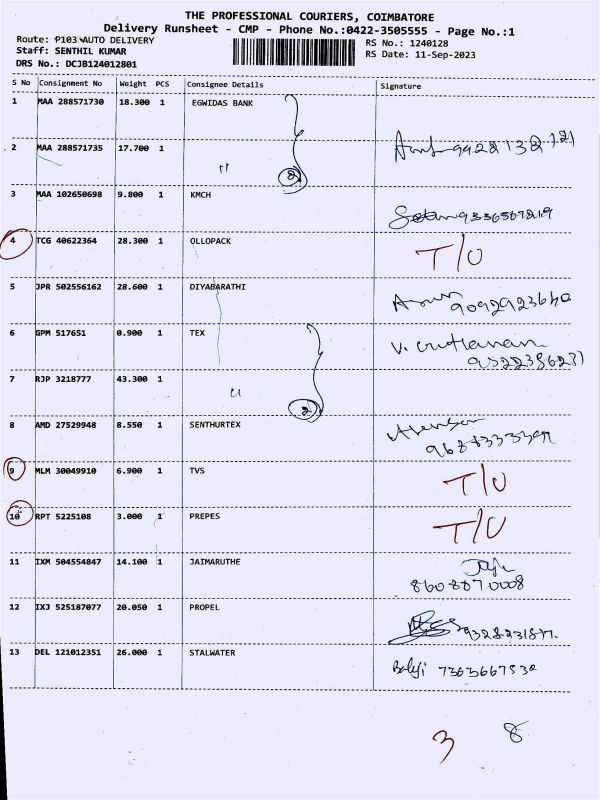 THE PROFESSIONAL COURIERS, COIMBATORE
Delivery Runsheet - CMP - Phone No.:0422-3505555 - Page No.:1
Route: P103-AUTO DELIVERY
Staff: SENTHIL KUMAR
DRS No.: DCJB124012801
RS No.: 1240128
RS Date: 11-Sep-2023
S No Consignment No Weight PCS Consignee Details Signature
1 MAA 288571730 18.300 1 EGWIDAS BANK
2 MAA 288571735 17.700 1 "
2
3 MAA 102650698 9.800 1 KMCH
4 TCG 40622364 28.300 1 OLLOPACK T/U
5 JPR 502556162 28.600 1 DIYABARATHI
6 GPM 517651 0.900 1 TEX
7 RJP 3218777 43.300 1 "
2
8 AMD 27529948 8.550 1 SENTHURTEX
9 MLM 30049910 6.900 1 TVS T/U
10 RPT 5225108 3.000 1 PREPES T/U
11 IXM 504554847 14.100 1 JAIMARUTHE
8608870008
12 IXJ 525187077 20.050 1 PROPEL
13 DEL 121012351 26.000 1 STALWATER Balji 7363667530
3 8